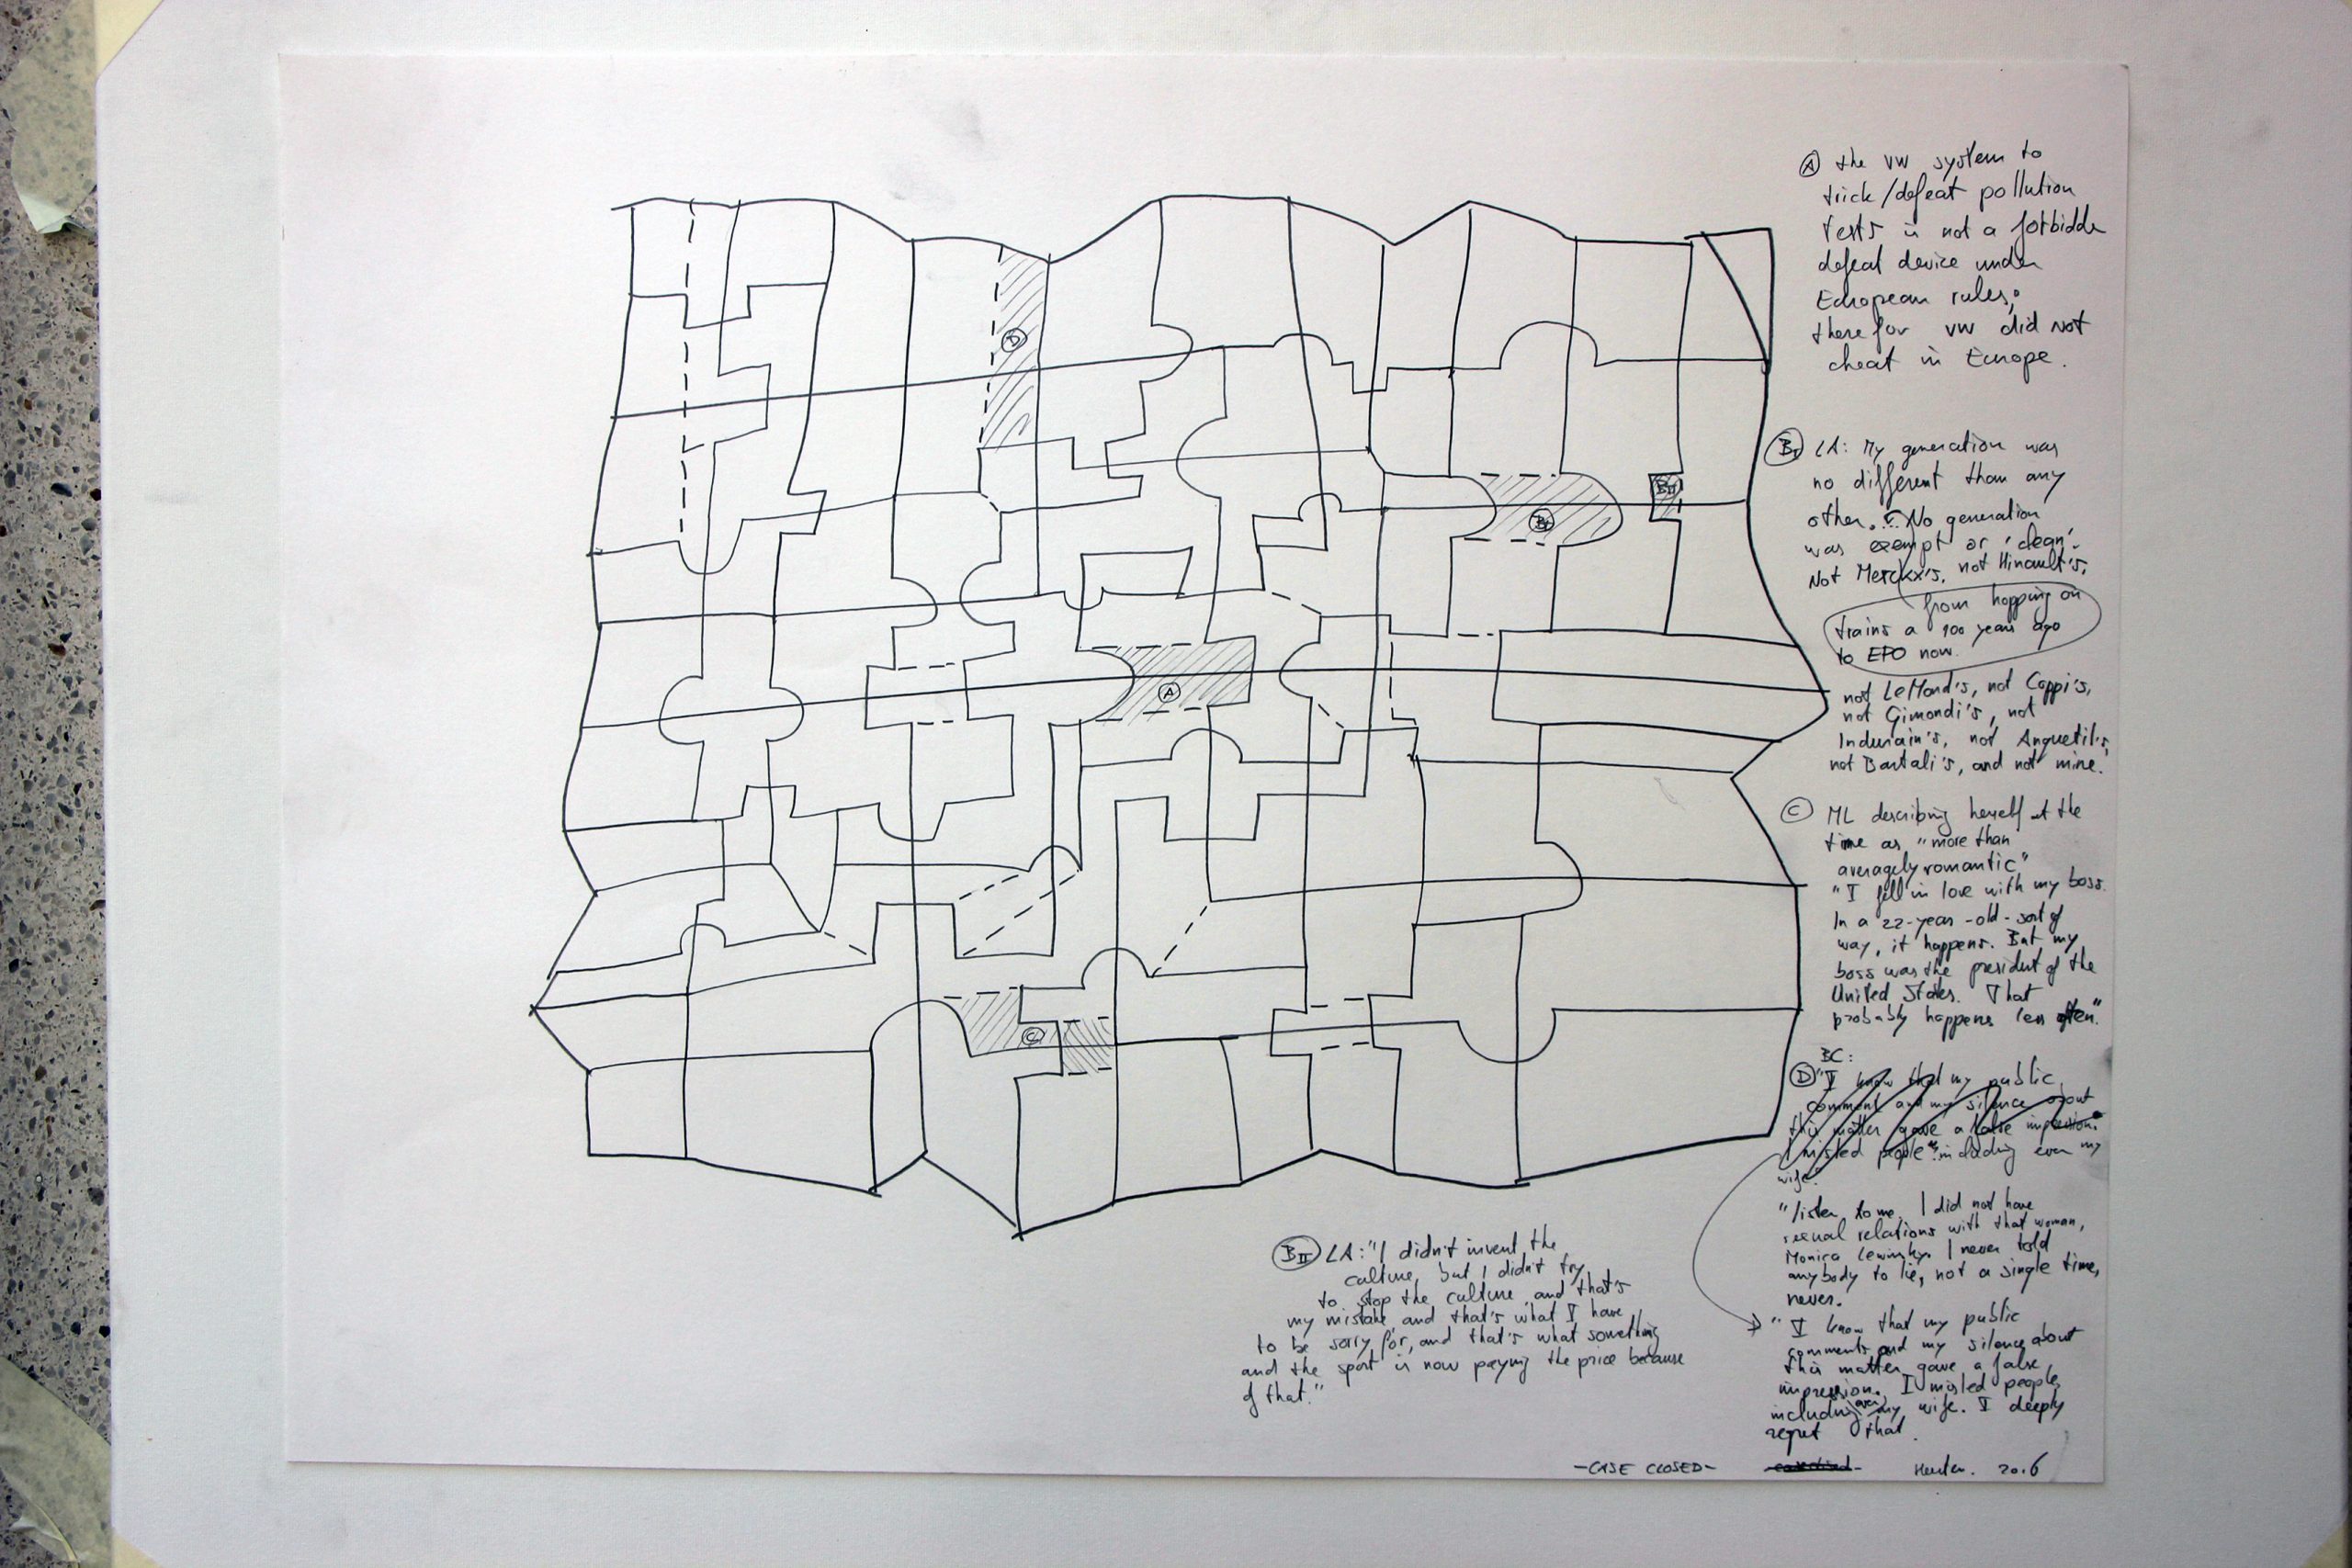 D
B I
B II
A
C
A the VW system to
trick/defeat pollution
tests is not a forbidden
defeat device under
European rules;
therefor VW did not
cheat in Europe.
B I LA: My generation was
no different than any
other. ... No generation
was exempt or 'clean'.
Not Merckx's, not Hinault's,
from hopping on
trains a 100 years ago
to EPO now.
not LeMond's, not Coppi's,
not Gimondi's, not
Indurain's, not Anquetil's,
not Bartali's, and not mine.
C ML describing herself at the
time as "more than
averagely romantic"
"I fell in love with my boss.
In a 22-year-old-sort of
way, it happens. But my
boss was the president of the
United States. That
probably happens less often."
BC:
D "I know that my public
comment and my silence about
this matter gave a false impression.
I misled people" including even my
wife."
"listen to me. I did not have
sexual relations with that woman,
Monica Lewinsky. I never told
anybody to lie, not a single time,
never.
"I know that my public
comments and my silence about
this matter gave a false
impression. I misled people,
including even my wife. I deeply
regret that.
B II LA: "I didn't invent the
culture, but I didn't try
to stop the culture and that's
my mistake and that's what I have
to be sorry for, and that's what something
and the sport is now paying the price because
of that."
-CASE CLOSED-
2016